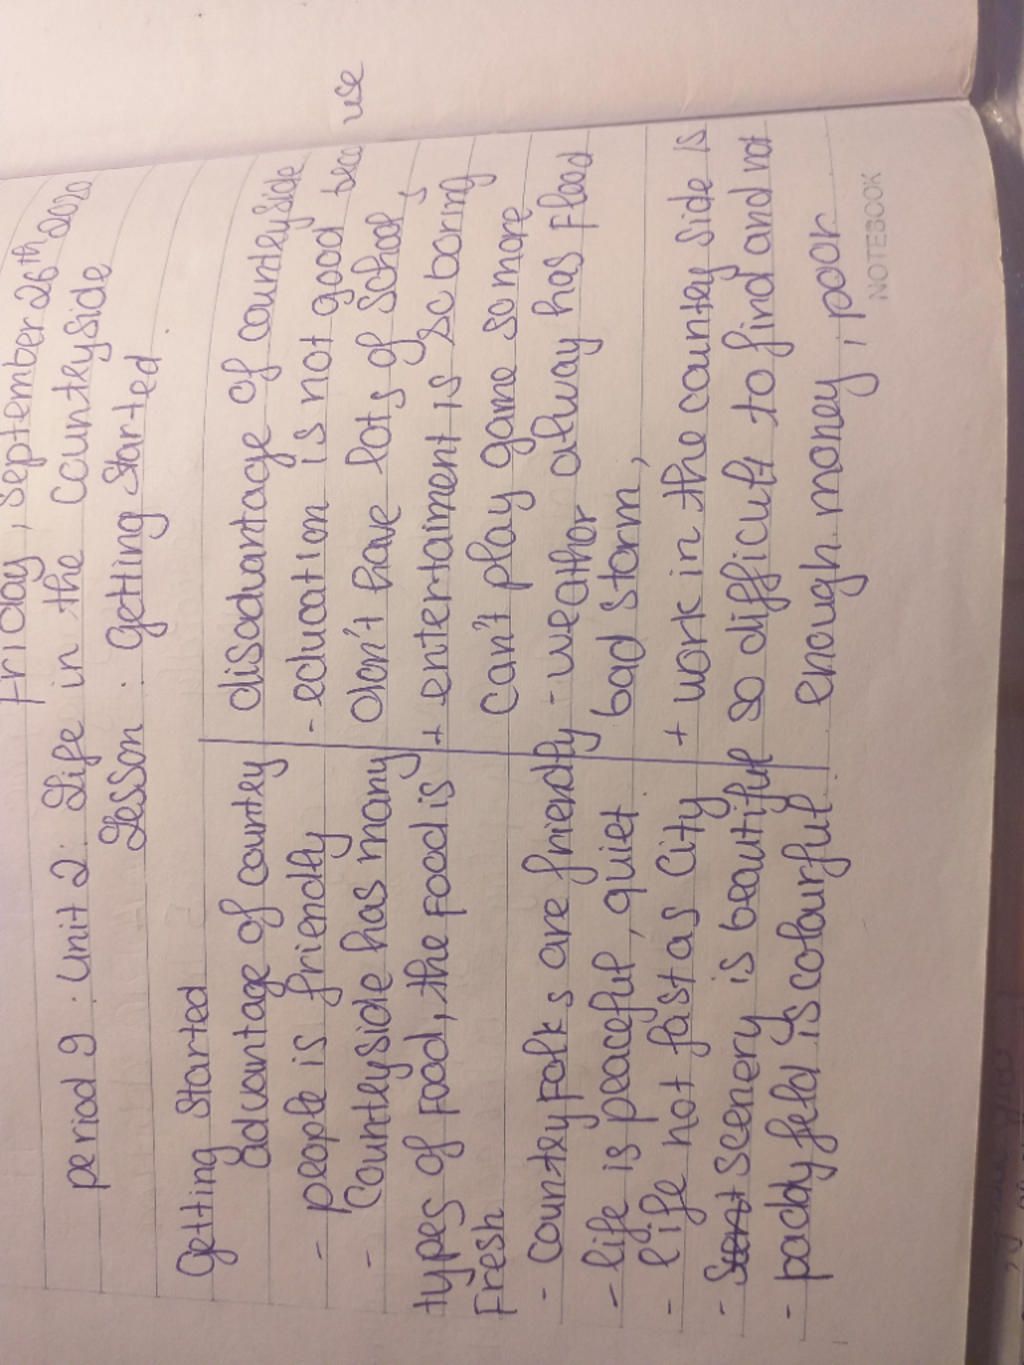 Friday, September 26th 2020
period 9 : Unit 2 : Life in the countryside
Lesson : Getting Started
Getting Started
advantage of country
- people is friendly
- Countryside has many
types of food, the food is
Fresh
- country folk s are friendly
- life is peaceful, quiet
- life not fast as city
- scenery is beautiful
- paddy feld is colourful
disadvantage of countryside
- education is not good because
don't have lots of school,
+ entertaiment is so boring
can't play game so more
- weather alway has flood
bad storm,
+ work in the country side is
so difficult to find and not
enough money, poor
NOTEBOOK